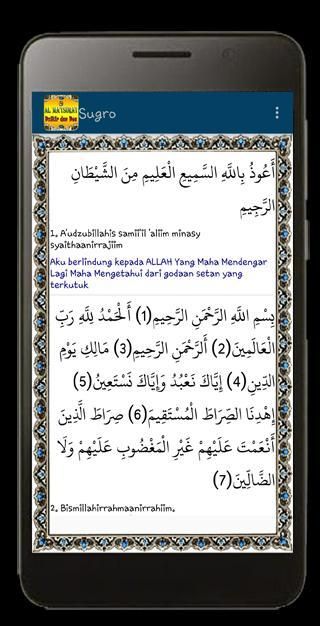 AL MA'TSURAT
Dzikir dan Doa
Sugro
أَعُوذُ بِاللَّهِ السَّمِيعِ الْعَلِيمِ مِنَ الشَّيْطَانِ
الرَّجِيمِ
1. A'udzubillahis samii'il 'aliim minasy
syaithaanirrajiim
Aku berlindung kepada ALLAH Yang Maha Mendengar
Lagi Maha Mengetahui dari godaan setan yang
terkutuk
بِسْمِ اللَّهِ الرَّحْمَنِ الرَّحِيمِ(1) أَلْحَمْدُ لِلَّهِ رَبِّ
الْعَالَمِينَ(2) أَلرَّحْمَنِ الرَّحِيمِ(3) مَالِكِ يَوْمِ
الدِّينِ(4) إِيَّاكَ نَعْبُدُ وَإِيَّاكَ نَسْتَعِينُ(5)
إِهْدِنَا الصِّرَاطَ الْمُسْتَقِيمَ(6) صِرَاطَ الَّذِينَ
أَنْعَمْتَ عَلَيْهِمْ غَيْرِ الْمَغْضُوبِ عَلَيْهِمْ وَلَا
الضَّالِّينَ(7)
2. Bismillahirrahmaanirrahiim.